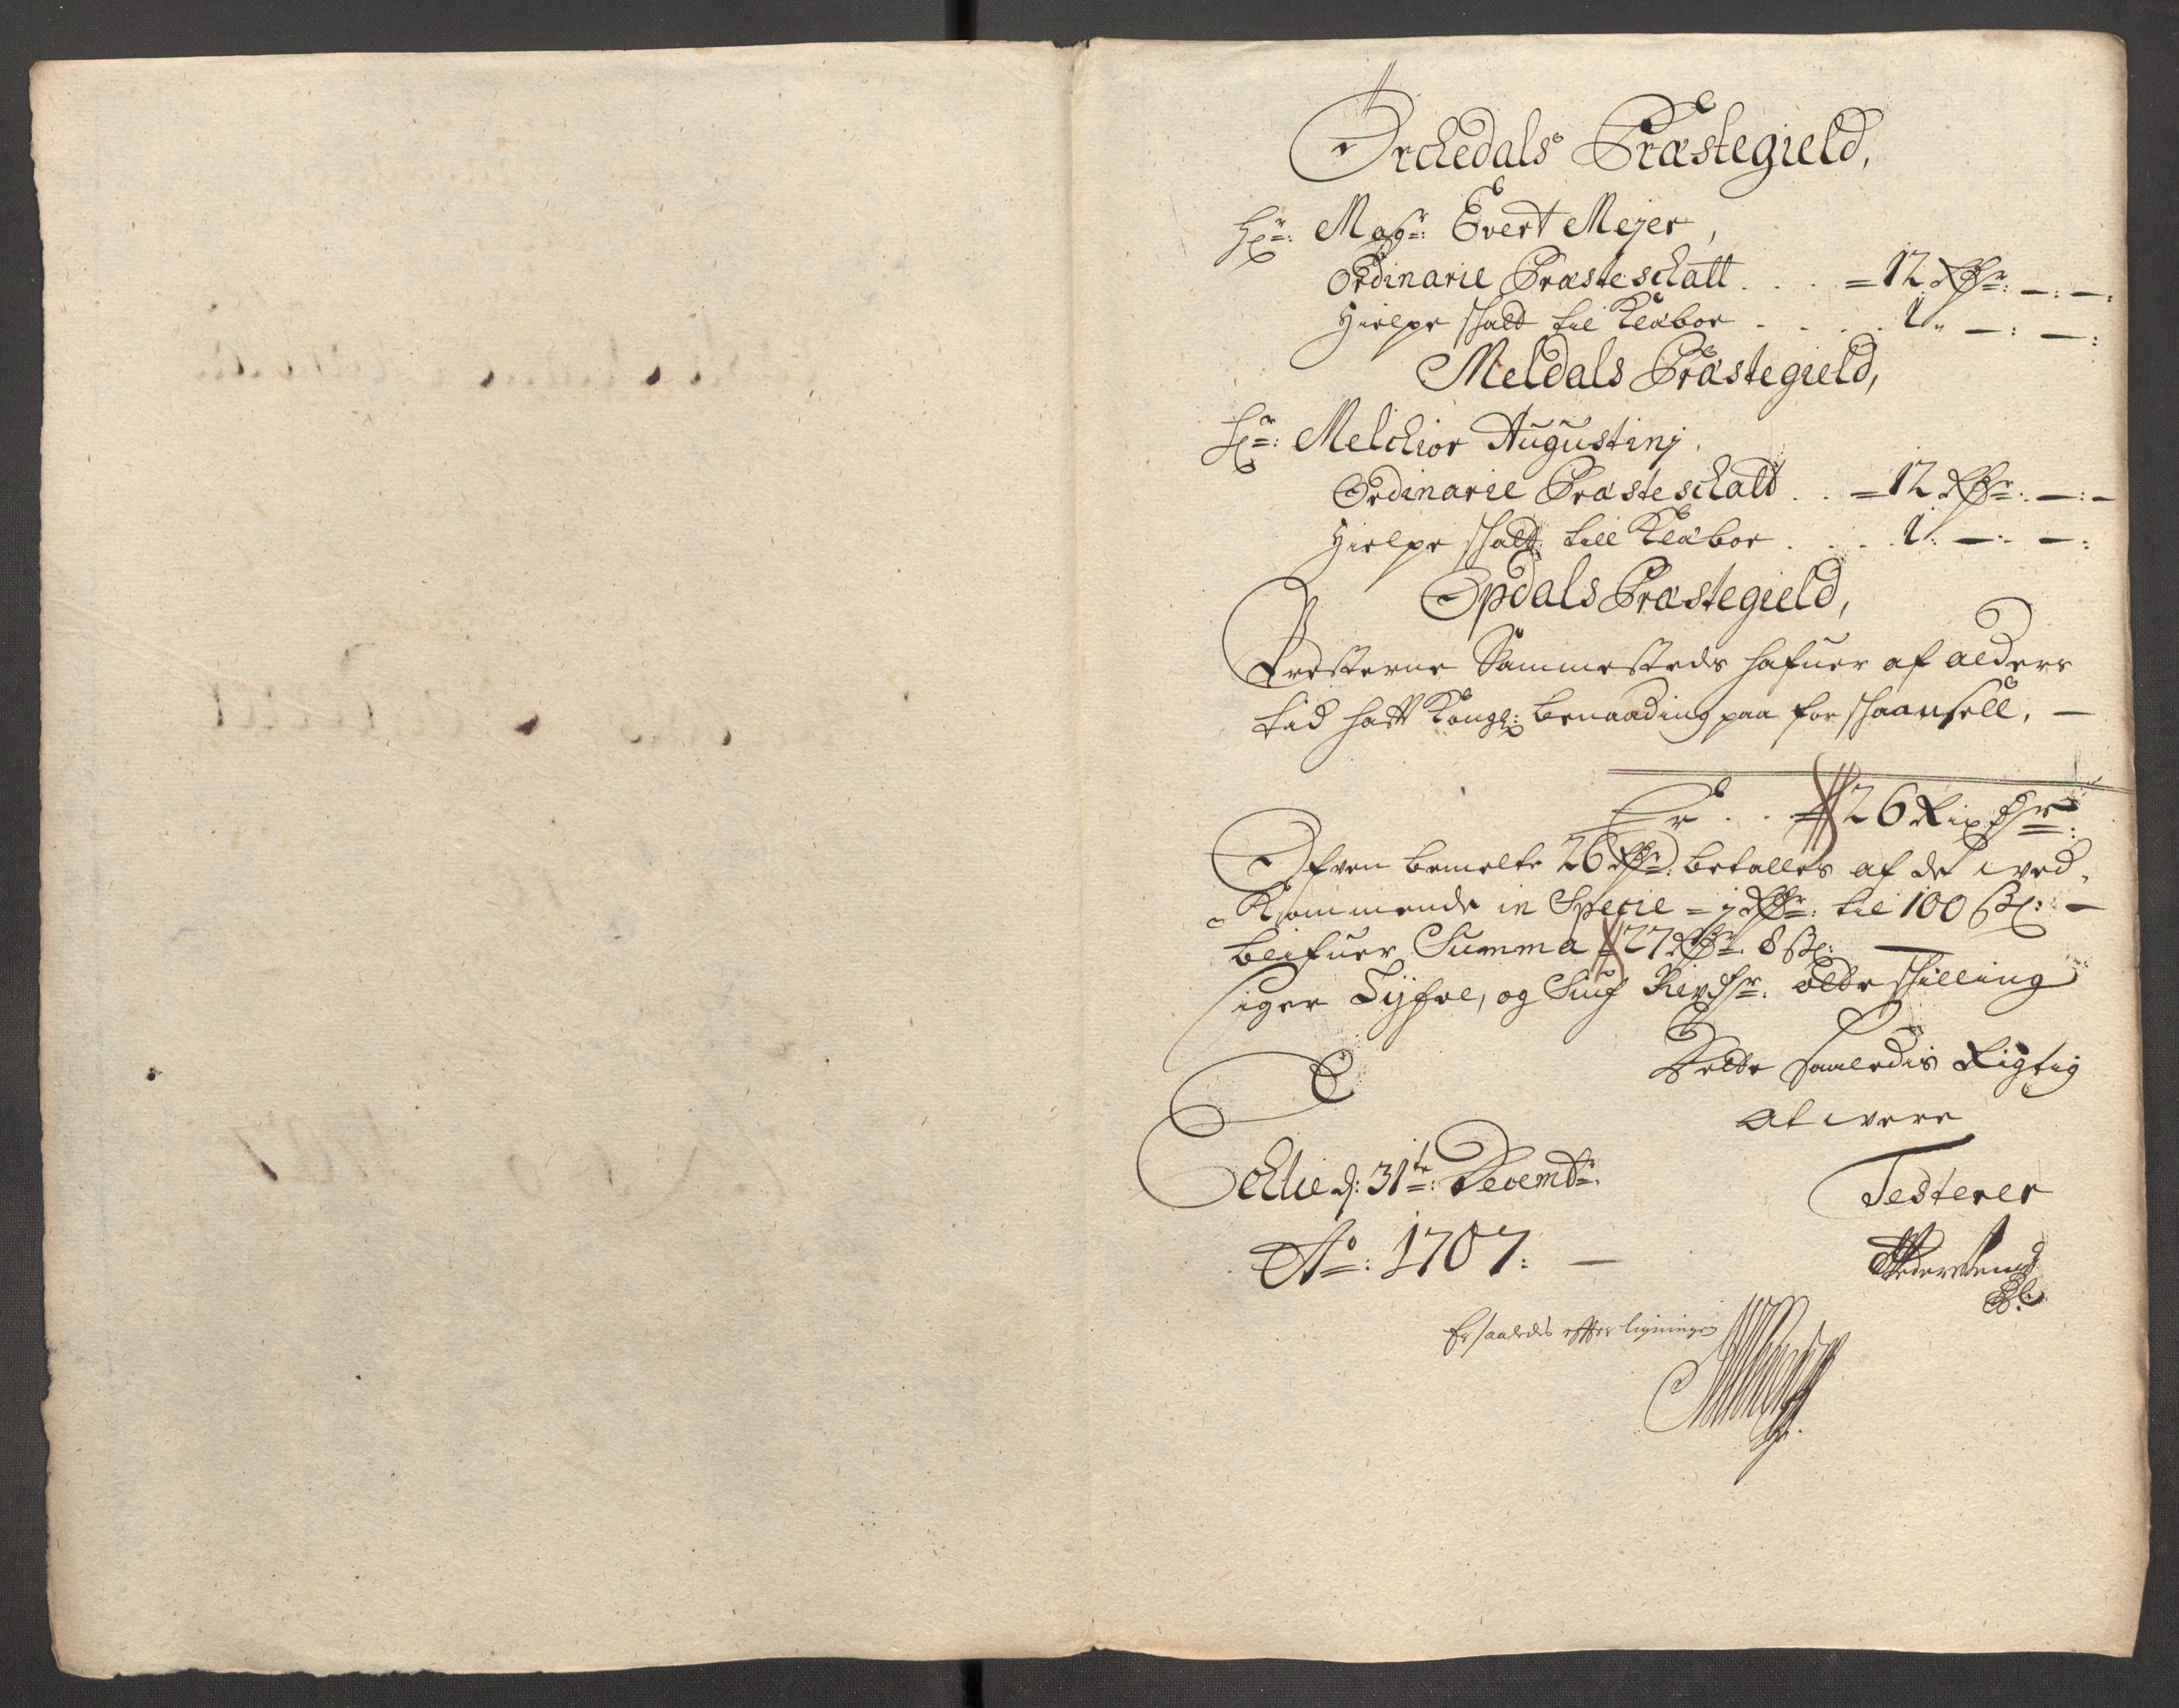 Orchedals Præstegield,
Hr: Magr: Evert Mejer,
Ordinarie Præsteschatt . . . = 12 Rdr: — : — :
Hielpe schatt til Klæboe . . . . 1 „ — : — :
Meldals Præstegield,
Hr: Melchior Augustinj.
Ordinarie Præsteschatt . . = 12 Rdr: — : —
Hielpe schatt till Klæboe . . . . 1 : — : — :
Opdals Præstegield,
Presterne Sammesteds hafuer af alders
tid hatt Kongl: benaading paa forschaansell, —
Er . . = 26 Rixdr:
Ofven bemelte 26 Rdr: betalles af de wed-
Kommende in Specie = 1 Rdr: til 100 s: —
blifuer Summa = 27 Rdr 8 s:
siger Tijfve, og Siuf Rixdr: otte schilling
Dette saaledis Rigtig
at were
Testerer
Echlie d: 31te: Decembr:
Ao: 1707: —
Er saaledes effter ligningen